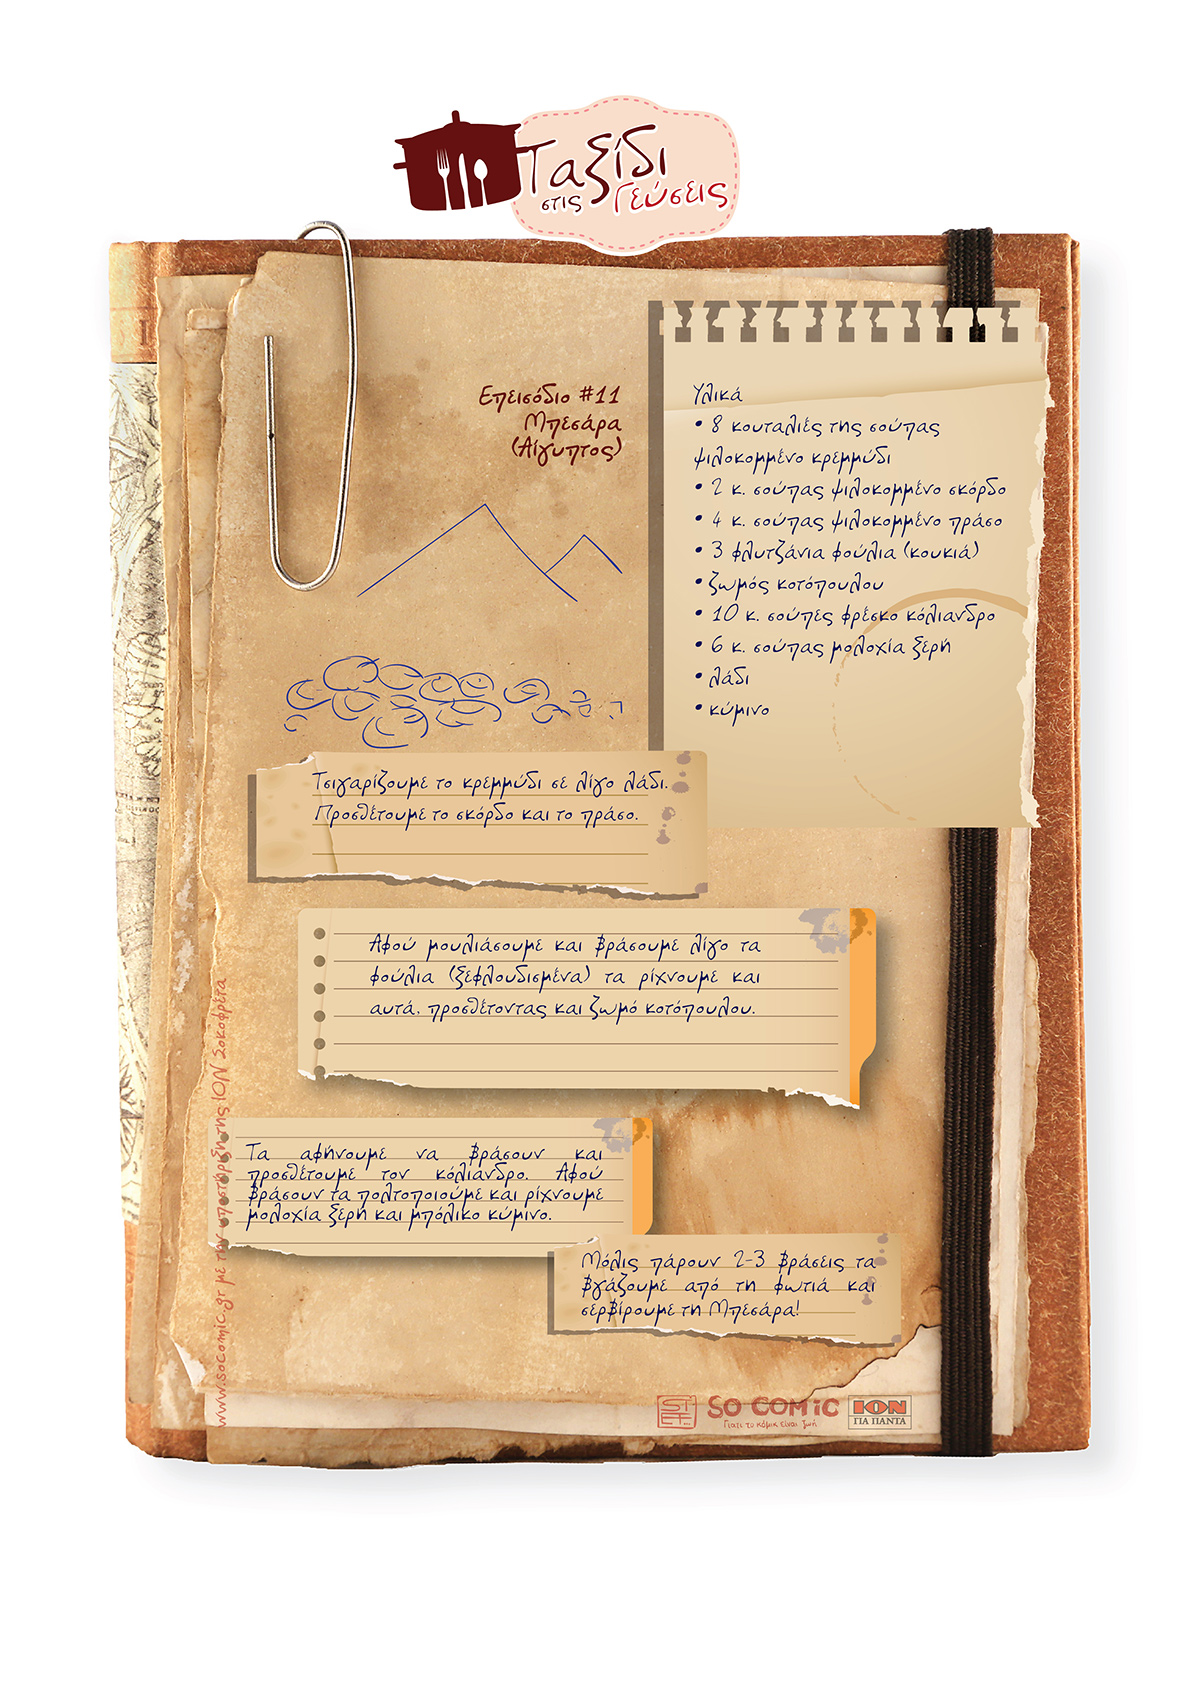 Ταξίδι
στις Γεύσεις
Επεισόδιο #11
Μπεσάρα
(Αίγυπτος)
Υλικά
• 8 κουταλιές της σούπας
ψιλοκομμένο κρεμμύδι
• 2 κ. σούπας ψιλοκομμένο σκόρδο
• 4 κ. σούπας ψιλοκομμένο πράσο
• 3 φλυτζάνια φούλια (κουκιά)
• ζωμός κοτόπουλου
• 10 κ. σούπες φρέσκο κόλιανδρο
• 6 κ. σούπας μολοχία ξερή
• λάδι
• κύμινο
Τσιγαρίζουμε το κρεμμύδι σε λίγο λάδι.
Προσθέτουμε το σκόρδο και το πράσο.
Αφού μουλιάσουμε και βράσουμε λίγο τα
φούλια (ξεφλουδισμένα) τα ρίχνουμε και
αυτά, προσθέτοντας και ζωμό κοτόπουλου.
Τα αφήνουμε να βράσουν και
προσθέτουμε τον κόλιανδρο. Αφού
βράσουν τα πολτοποιούμε και ρίχνουμε
μολοχία ξερή και μπόλικο κύμινο.
Μόλις πάρουν 2-3 βράσεις τα
βγάζουμε από τη φωτιά και
σερβίρουμε τη Μπεσάρα!
www.soComic.gr με την υποστήριξη της ΙΟΝ Σοκοφρέτα
SO COMIC
Γιατί το κόμικ είναι ζωή
ΙΟΝ
ΓΙΑ ΠΑΝΤΑ